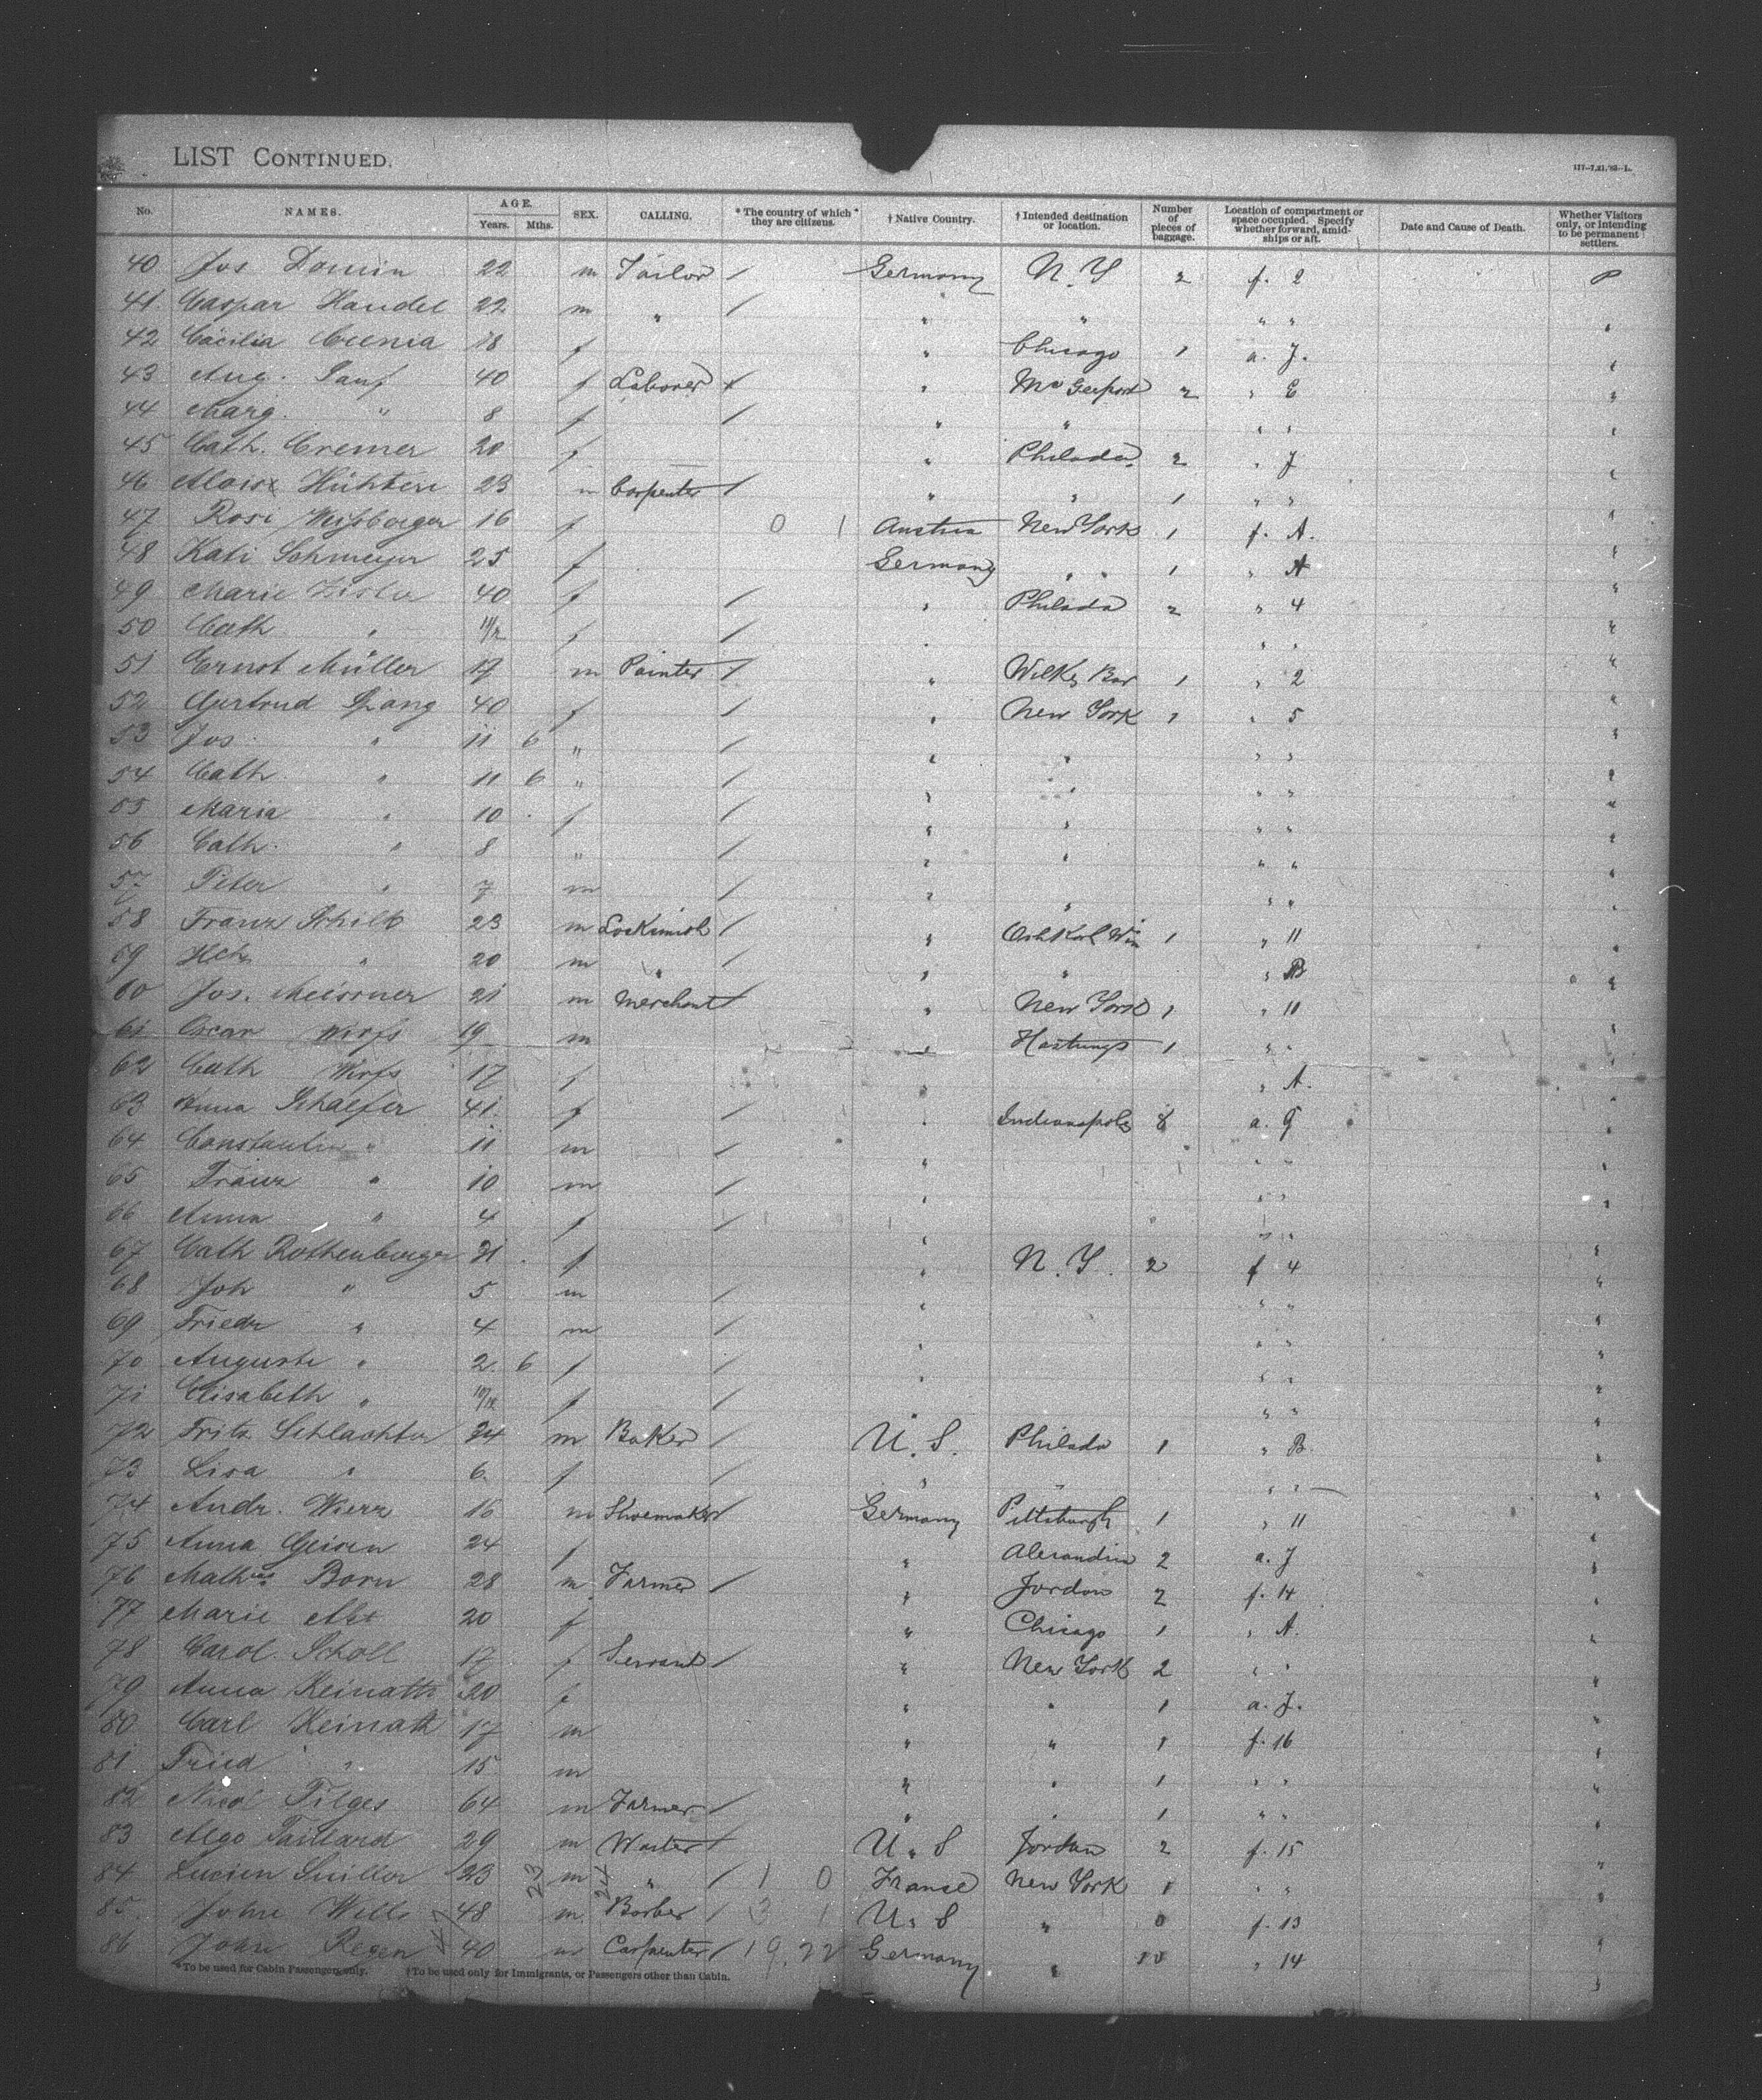 LIST CONTINUED.
177–7,21,'83–L.
No. NAMES. AGE. Years. Mths. SEX. CALLING. * The country of which they are citizens. † Native Country. † Intended destination or location. Number of pieces of baggage. Location of compartment or space occupied. Specify whether forward, amidships or aft. Date and Cause of Death. Whether Visitors only, or intending to be permanent settlers.
40 Jos Domin 22 m Tailor / Germany N. Y 2 f. 2 P
41. Caspar Handel 22 m " / " " " "
42 Cäcilia 18 f " Chicago 1 a. J.
43 Aug. 40 f Laborer " 2 " E
44 Marg. " 8 f / " " " "
45 Cath. Cremer 20 f " Philada. 2 " J
46 Alois 23 m Carpenter / " " 1 " "
47 Rosi 16 f 0 1 Austria New York 1 f. A.
48 Kati Sohmeyer 25 f Germany " " 1 " A
49 Marie 40 f / " Philada 2 " 4
50 Cath " f / " " "
51 Ernst Müller 19 m Painter / " Wilkes Bar 1 " 2
52 Gertrud Spang 40 f / " New York 1 " 5
53 Jos " 11 6 " / " " " "
54 Cath " 11 6 " / " " " "
55 Maria " 10 f / " " " "
56 Cath. " 8 " / " " " "
57 Peter " 7 m / " " " "
58 Franz 23 m / " 1 " 11
59 " 20 m " / " " " B
60 Jos. Meissner 21 m Merchant / " New York 1 " 10
61 Oscar 19 m " Hastings 1 " "
62 Cath 17 f " " A.
63 Anna Schaefer 41. f / " Indianapolis 8 a. G
64 Constantin " 11 m / " " "
65 Franz " 10 m / " " "
66 Anna " 4 f / " " "
67 Cath Rothenberger 31 f " N. Y. 2 f 4
68 Joh " 5 m / " " "
69 Friedr " 4 m / " " "
70 Auguste " 2 6 f / " " "
71 Elisabeth " 10/12 f / " " "
72 Fritz Schlachter 34 m Baker / U. S. Philada 1 " B
73 Lisa " 6. f / " " " "
74 Andr. 16 m Shoemaker / Germany Pittsburgh 1 " 11
75 Anna Geisen 24 f " Alexandria 2 a. J
76 Born 28 m Farmer / " Jordan 2 f. 14
77 Marie 20 f " Chicago 1 " A.
78 Carol. Scholl 17 f Servant / " New York 2 " "
79 Anna Keinath 20 f " " 1 a. J.
80 Carl Keinath 17 m " " 1 f. 16
81 Fried " 15 m " " 1 " "
82 Nicol Tilges 64 m Farmer / " " 1 " "
83 29 m Waiter / U. S Jordan 2 f. 15
84 Lucien 23 23 m 24 " / 1 0 France New York 1 " "
85. John Wells 48 m. Barber / 3 1 U. S " 0 f. 13
86 John Regen 40 m Carpenter / 19. 22 Germany " 10 " 14
* To be used for Cabin Passengers only. †To be used only for Immigrants, or Passengers other than Cabin.